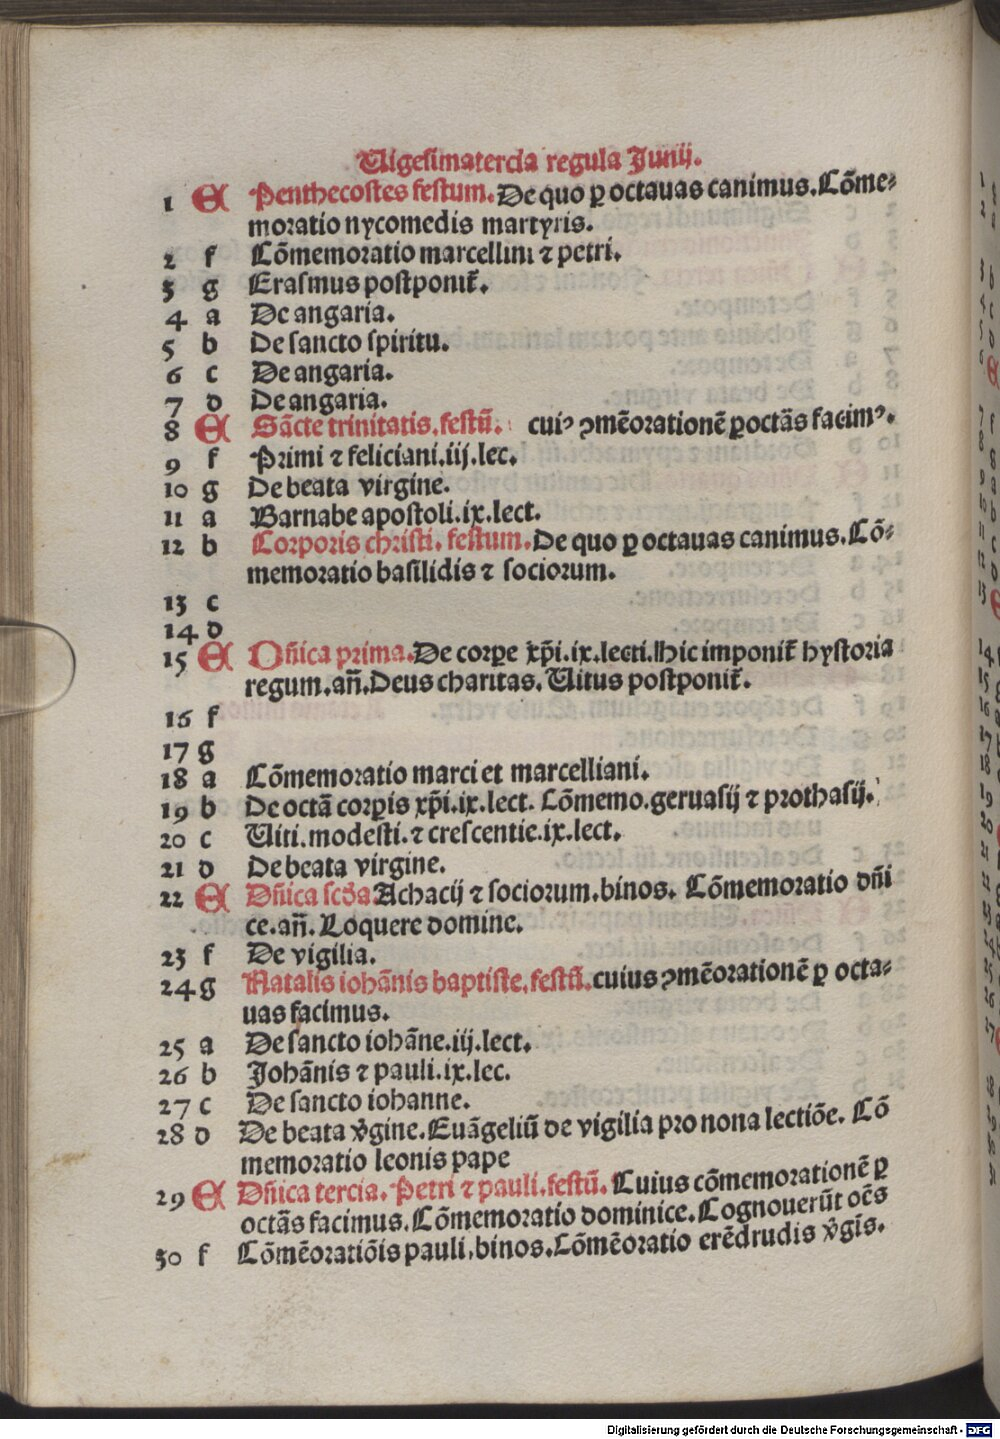 Uigesimatercia regula Junij.
1 E Penthecostes festum. De quo ꝑ octauas canimus. Cõme-
moratio nycomedis martyris.
2 f Cõmemoratio marcellini ⁊ petri.
3 g Erasmus postponit̃.
4 a De angaria.
5 b De sancto spiritu.
6 c De angaria.
7 d De angaria.
8 E Sãcte trinitatis. festũ. cuiꝰ ꝯmẽorationẽ ꝑ octãs facimꝰ.
9 f Primi ⁊ feliciani. iij. lec.
10 g De beata virgine.
11 a Barnabe apostoli. ix. lect.
12 b Corporis christi. festum. De quo ꝑ octauas canimus. Cõ-
memoratio basilidis ⁊ sociorum.
13 c
14 d
15 E Dñica prima. De corꝑe xp̃i. ix. lecti. Hic imponit̃ hystoria
regum. añ. Deus charitas. Uitus postponit̃.
16 f
17 g
18 a Cõmemoratio marci et marcelliani.
19 b De octã corꝑis xp̃i. ix. lect. Cõmemo. geruasij ⁊ prothasij.
20 c Uiti. modesti. ⁊ crescentie. ix. lect.
21 d De beata virgine.
22 E Dñica scďa Achacij ⁊ sociorum. binos. Cõmemoratio dñi
ce. añ. Loquere domine.
23 f De vigilia.
24 g Natalis iohãnis baptiste. festũ. cuius ꝯmẽorationẽ ꝑ octa-
uas facimus.
25 a De sancto iohãne. iij. lect.
26 b Johãnis ⁊ pauli. ix. lec.
27 c De sancto iohanne.
28 d De beata v̾gine. Euãgeliũ de vigilia pro nona lectiõe. Cõ
memoratio leonis pape
29 E Dñica tercia. Petri ⁊ pauli. festũ. Cuius cõmemorationẽ ꝑ
octãs facimus. Cõmemoratio dominice. Cognouerũt oẽs
30 f Cõmẽoratiõis pauli. binos. Cõmẽoratio erẽdrudis v̾gĩs.
Digitalisierung gefördert durch die Deutsche Forschungsgemeinschaft - DFG